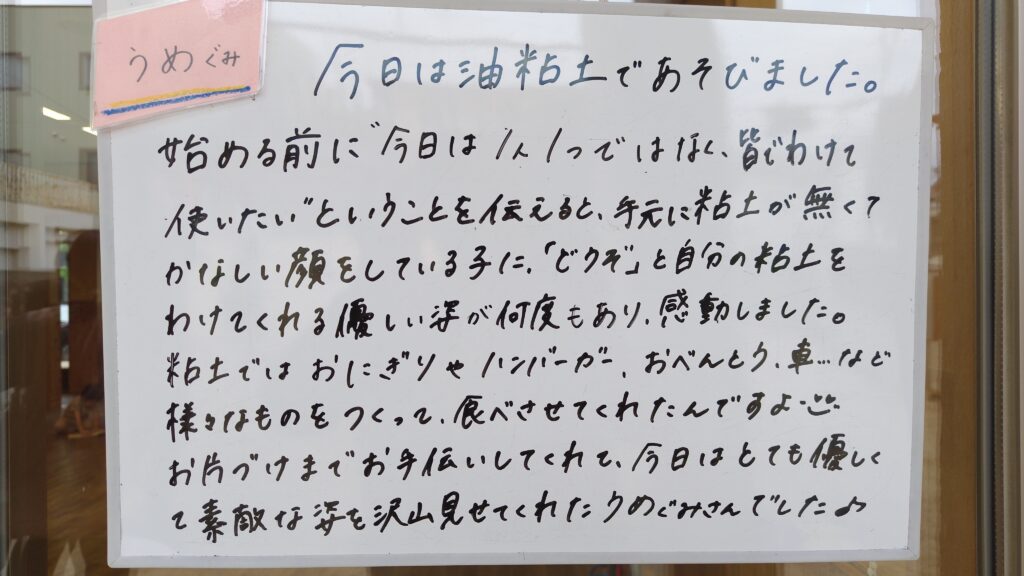 うめぐみ
今日は油粘土であそびました。
始める前に"今日は1人1つではなく、皆でわけて
使いたい"ということを伝えると、手元に粘土が無くて
かなしい顔をしている子に、「どうぞ」と自分の粘土を
わけてくれる優しい姿が何度もあり、感動しました。
粘土ではおにぎりやハンバーガー、おべんとう、車…など
様々なものをつくって、食べさせてくれたんですよ
お片づけまでお手伝いしてくれて、今日はとても優しく
て素敵な姿を沢山見せてくれたうめぐみさんでした♪